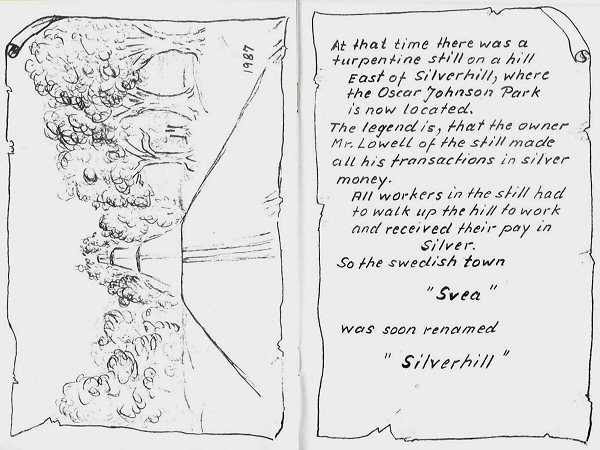 1987
At that time there was a
turpentine still on a hill
East of Silverhill, where
the Oscar Johnson Park
is now located.
The legend is, that the owner
Mr. Lowell of the still made
all his transactions in silver
money.
All workers in the still had
to walk up the hill to work
and received their pay in
Silver.
So the swedish town
"Svea"
was soon renamed
"Silverhill"